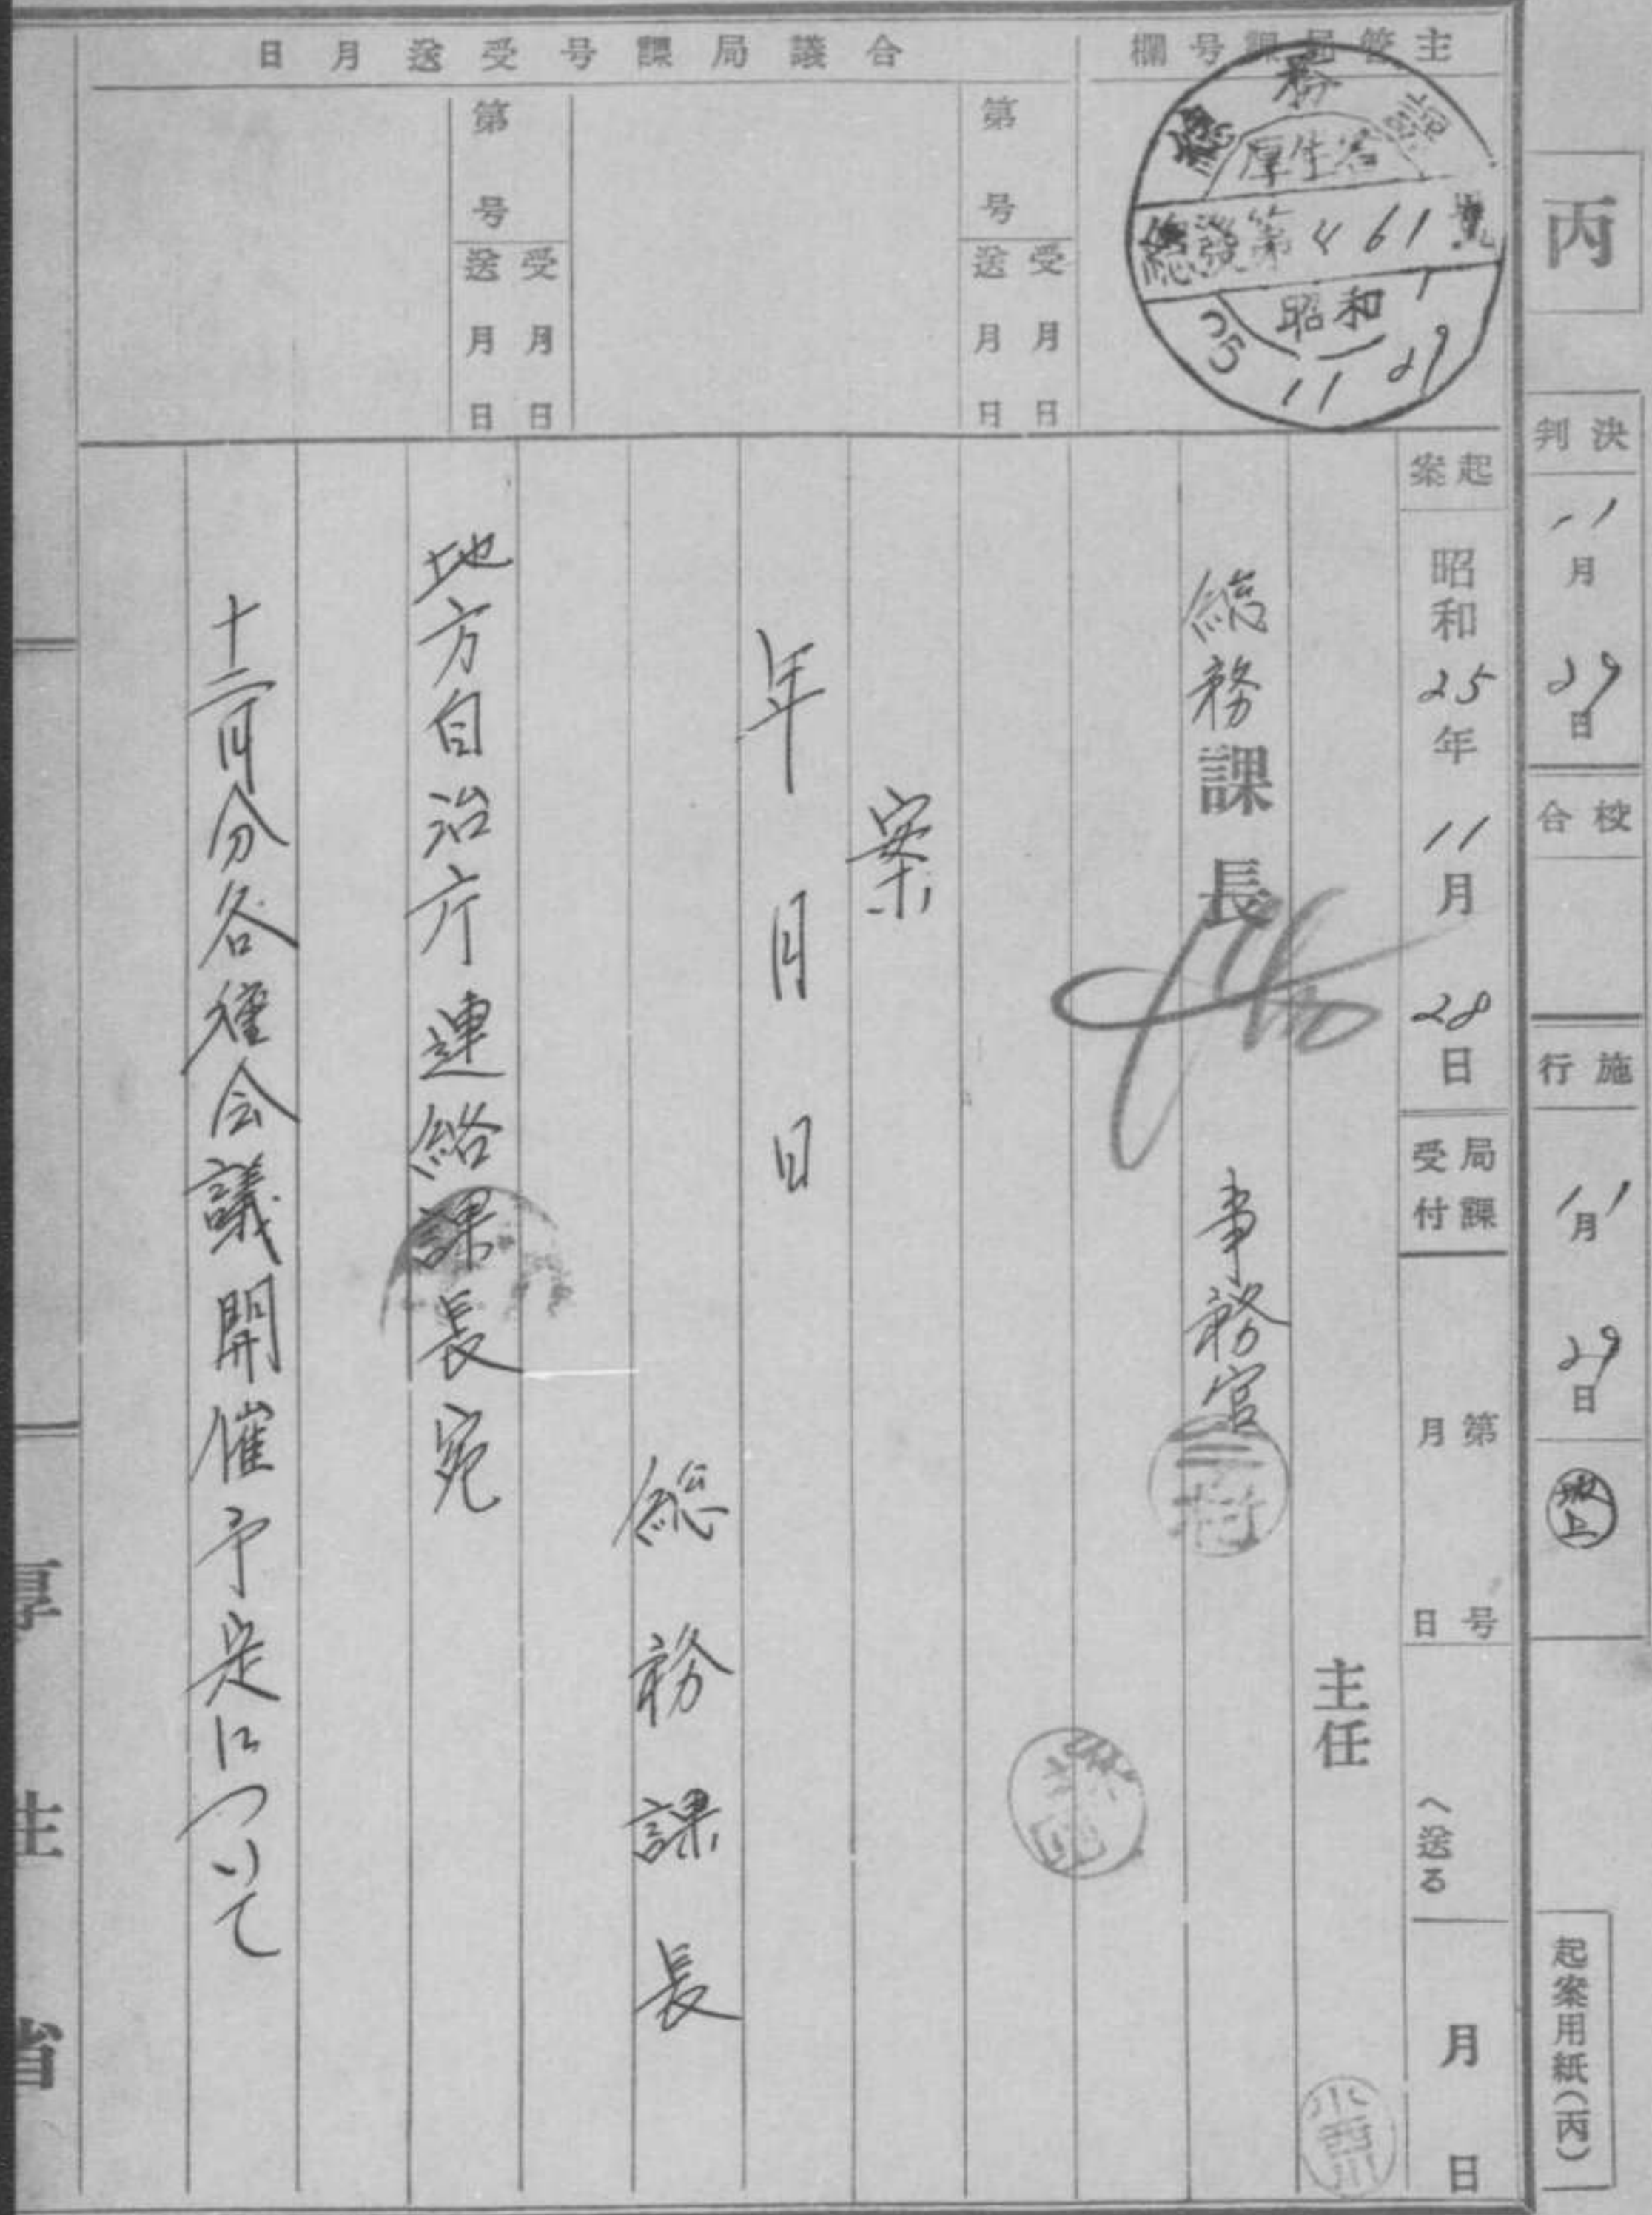 丙
決判
11月29日
校合
施行
11月29日
坂上
起案用紙(丙)
主管局課号欄
総務課
厚生省
総発第461号
昭和
25 11 29
合議局課号受送月日
第 号
受 月 日
送 月 日
第 号
受 月 日
送 月 日
起案
昭和25年11月28日
局課受付
第 号
月 日
へ送る
月 日
主任
総務課長
事務官
案
年月日
総務課長
地方自治庁連絡課長宛
十二月分各種会議開催予定について
厚生省